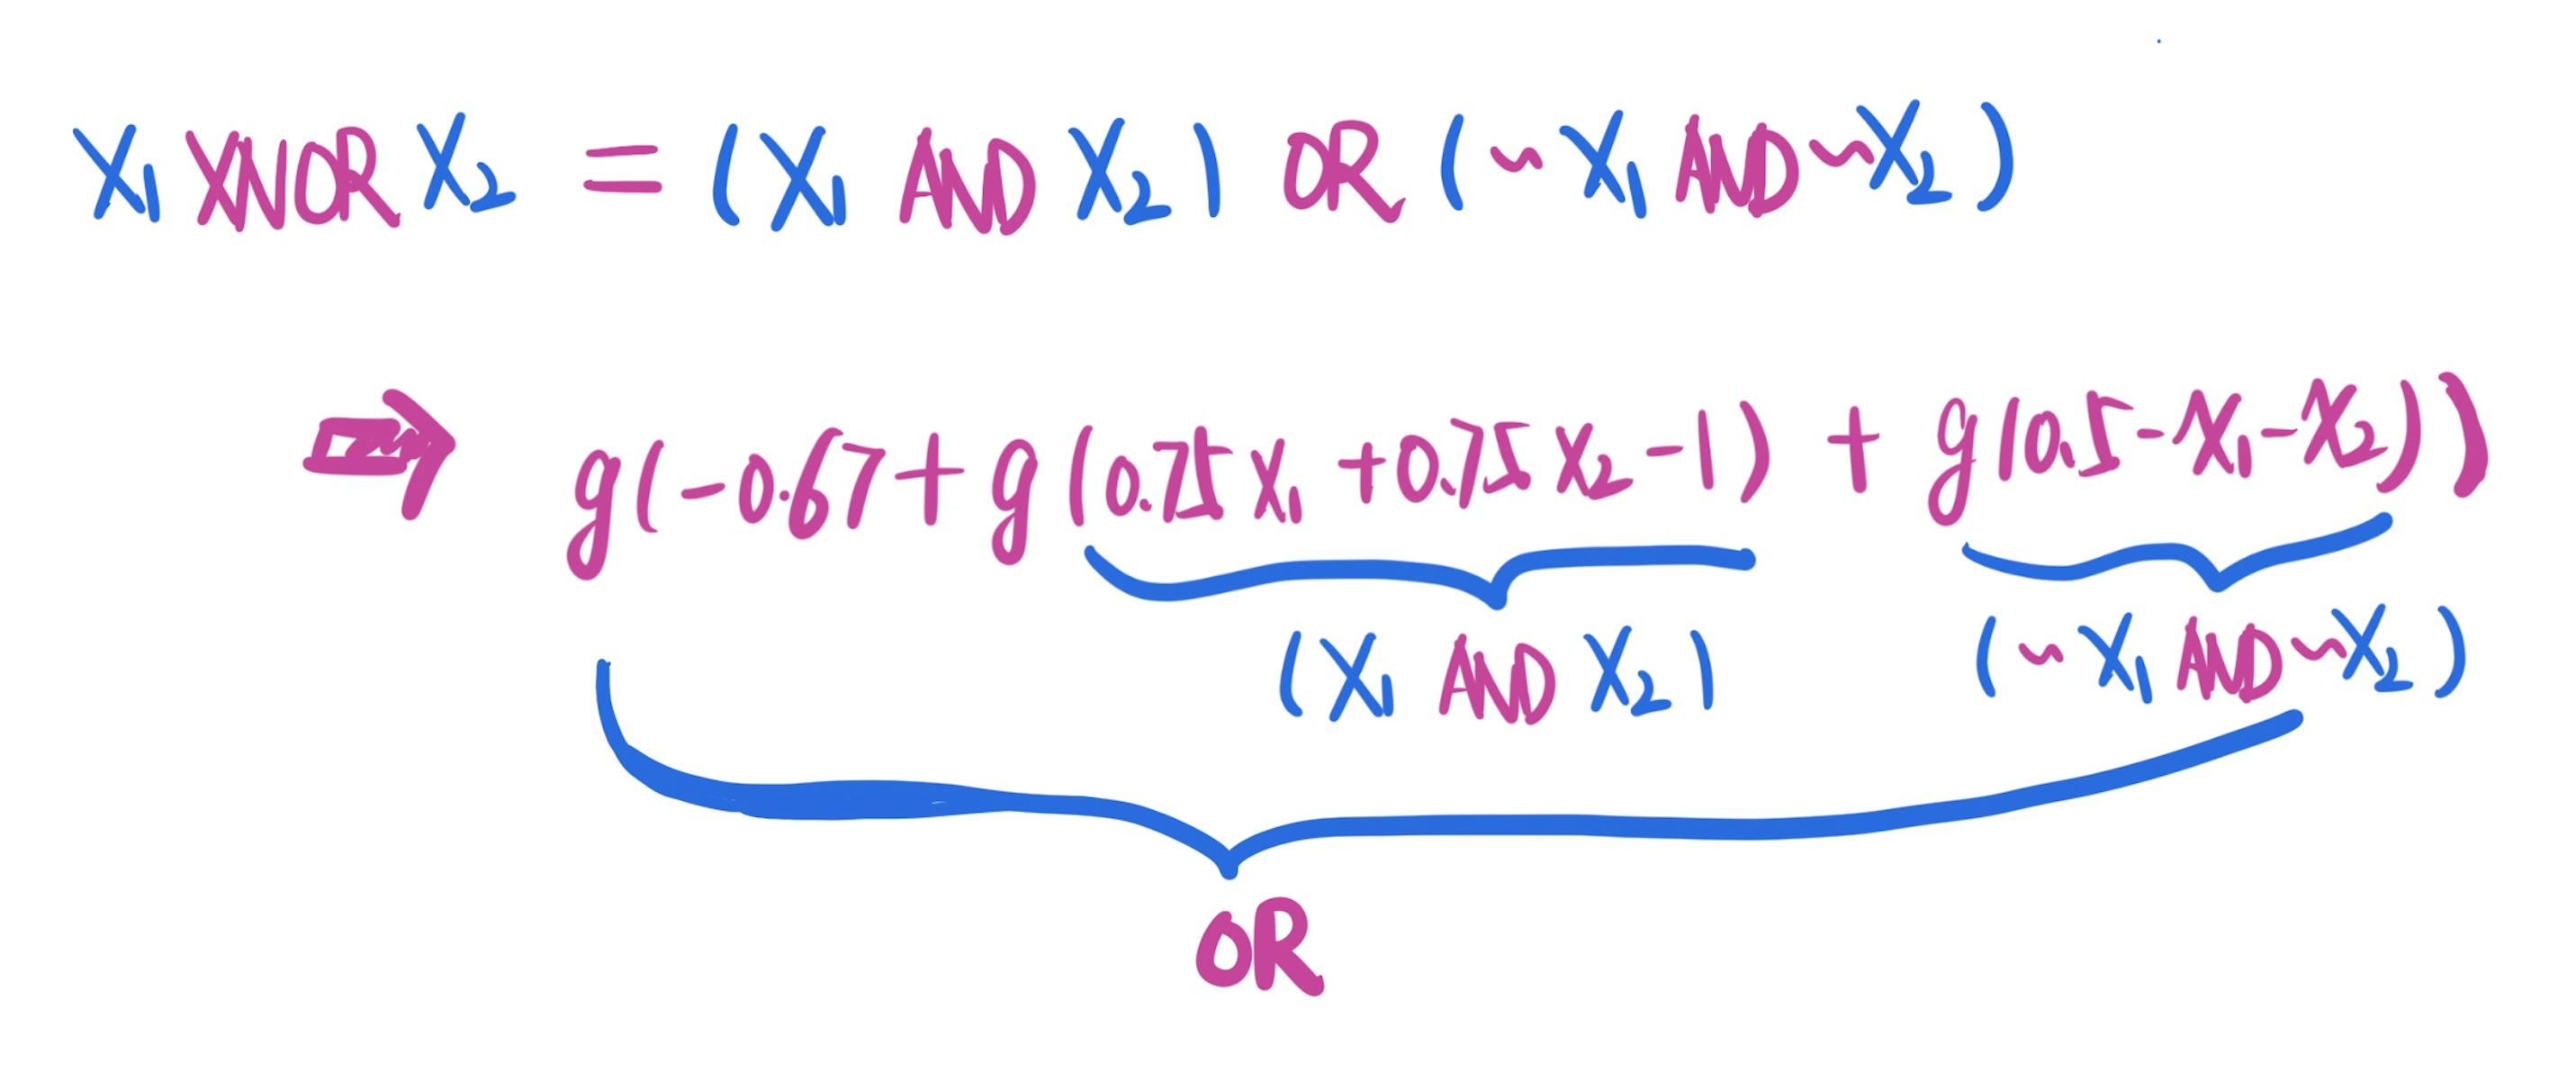 X₁ XNOR X₂ = (X₁ AND X₂) OR (~X₁ AND ~X₂)
⇒ g(-0.67+g(0.75x₁+0.75x₂-1) + g(0.5-x₁-x₂))
(X₁ AND X₂) (~X₁ AND ~X₂)
OR